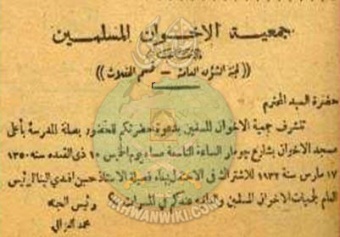 جمعية الاخوان المسلمين
((لجنة الشؤون العامة - قسم الحفلات))
حضرة السيد المحترم
تتشرف جمعية الاخوان المسلمين بدعوة حضرتكم للحضور بصلة المدرسة بأعلى
مسجد الاخوان بشارع الساعة التاسعة مساء يوم الخميس ١٠ ذى القعده سنه ١٣٥٠
١٧ مارس سنة ١٩٣٢ للاشتراك فى الاحتفال بناء فضيلة الاستاذ حسن افندى البنا الرئيس
العام لجمعيات الاخوان المسلمين
رئيس اللجنة
محمد
IKHWANWIKI.COM